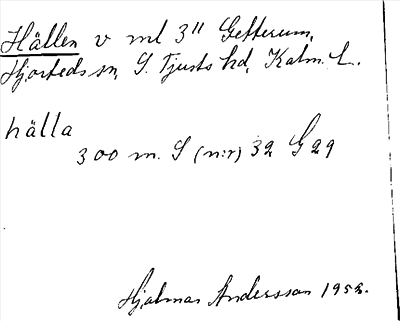 Hällen v ml 3" Getterum,
Hjorteds sn, S. Tjusts hd, Kalm. L.
hälla
300 m. S (n:r) 32 G 29
Hjalmar Andersson 1952.